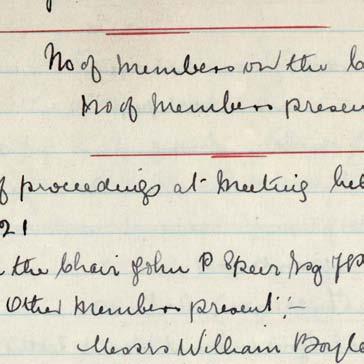 No of Members on the
No of Members presen
of proceedings at Meeting hel
21
the Chair John P Speer Esq JP
Other Members present :-
Messrs William Boyle